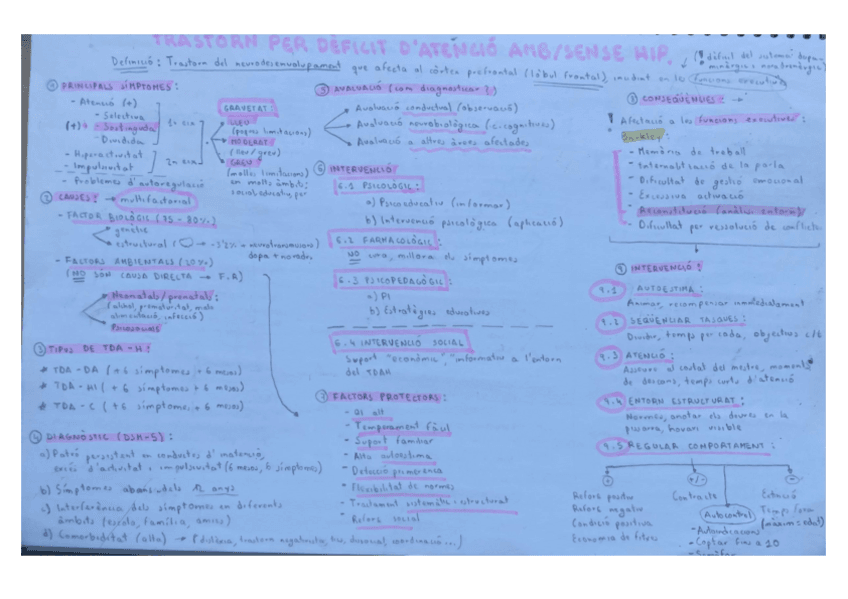 TRASTORN PER DÈFICIT D'ATENCIÓ AMB/SENSE HIP.
Definició: Trastorn del neurodesenvolupament que afecta al còrtex prefrontal (lòbul frontal), incidint en les funcions executives
(! dèficit del sistema dopaminèrgic i noradrenèrgic)
① PRINCIPALS SÍMPTOMES:
- Atenció (+)
- Selectiva
(+) - Sostinguda
- Dividida
- Hiperactivitat
- Impulsivitat
- Problemes d'autoregulació
GRAVETAT:
LLEU
(poques limitacions)
MODERAT
(lleu/greu)
GREU
(moltes limitacions)
en molts àmbits:
social, educatiu, per
② CAUSES: → multifactorial
- FACTOR BIOLÒGIC (75 - 80%)
genètic
estructural
dopa + noradre.
- FACTORS AMBIENTALS (20%)
(NO SÓN CAUSA DIRECTA → F.R)
Neonatals/prenatals:
alimentació, infecció)
Psicosocials
③ TIPUS DE TDA-H:
* TDA-DA (+6 símptomes +6 mesos)
* TDA-HI (+6 símptomes +6 mesos)
* TDA-C (+6 símptomes +6 mesos)
④ DIAGNÒSTIC (DSM-5):
a) Patró persistent en conductes d'inatenció,
excés d'activitat i impulsivitat (6 mesos, 6 símptomes)
b) Símptomes abans dels 12 anys
c) Interferència dels símptomes en diferents
àmbits (escola, família, amics)
d) Comorbiditat (alta) → (dislèxia, trastorn negativista, coordinació...)
⑤ AVALUACIÓ (com diagnosticar?)
Avaluació conductual (observació)
Avaluació neurobiològica (c. cognitives)
Avaluació a altres àrees afectades
⑥ INTERVENCIÓ
6.1 PSICOLÒGIC:
a) Psicoeducatiu (informar)
b) Intervenció psicològica (aplicació)
6.2 FARMACOLÒGIC:
NO cura, millora els símptomes
6.3 PSICOPEDAGÒGIC:
a) PI
b) Estratègies educatives
6.4 INTERVENCIÓ SOCIAL
Suport "econòmic", "informatiu a l'entorn
del TDAH
⑦ FACTORS PROTECTORS:
- QI alt
- Temperament fàcil
- Suport familiar
- Alta autoestima
- Detecció primerenca
- Flexibilitat de normes
- Tractament sistemàtic i estructurat
- Reforç social
⑧ CONSEQÜÈNCIES:
Afectació a les funcions executives:
Barkley:
- Memòria de treball
- Internalització de la parla
- Dificultat de gestió emocional
- Excessiva activació
- Reconstitució (anàlisi entorn)
- Dificultat per resolució de conflictes
⑨ INTERVENCIÓ:
9.1 AUTOESTIMA:
Animar, recompensar immediatament
9.2 SEQÜENCIAR TASQUES:
Dividir, temps per cada, objectius c/t
9.3 ATENCIÓ:
Asseure al costat del mestre, moments
de descans, temps curts d'atenció
9.4 ENTORN ESTRUCTURAT:
Normes, anotar els deures en la
pissarra, horari visible
9.5 REGULAR COMPORTAMENT:
+
+/-
-
Reforç positiu
Reforç negatiu
Condició positiva
Economia de fitxes
Contracte
Autocontrol
- Autoinstruccions
- Comptar fins a 10
- Semàfor
Extinció
Temps fora
(màxim = edat)